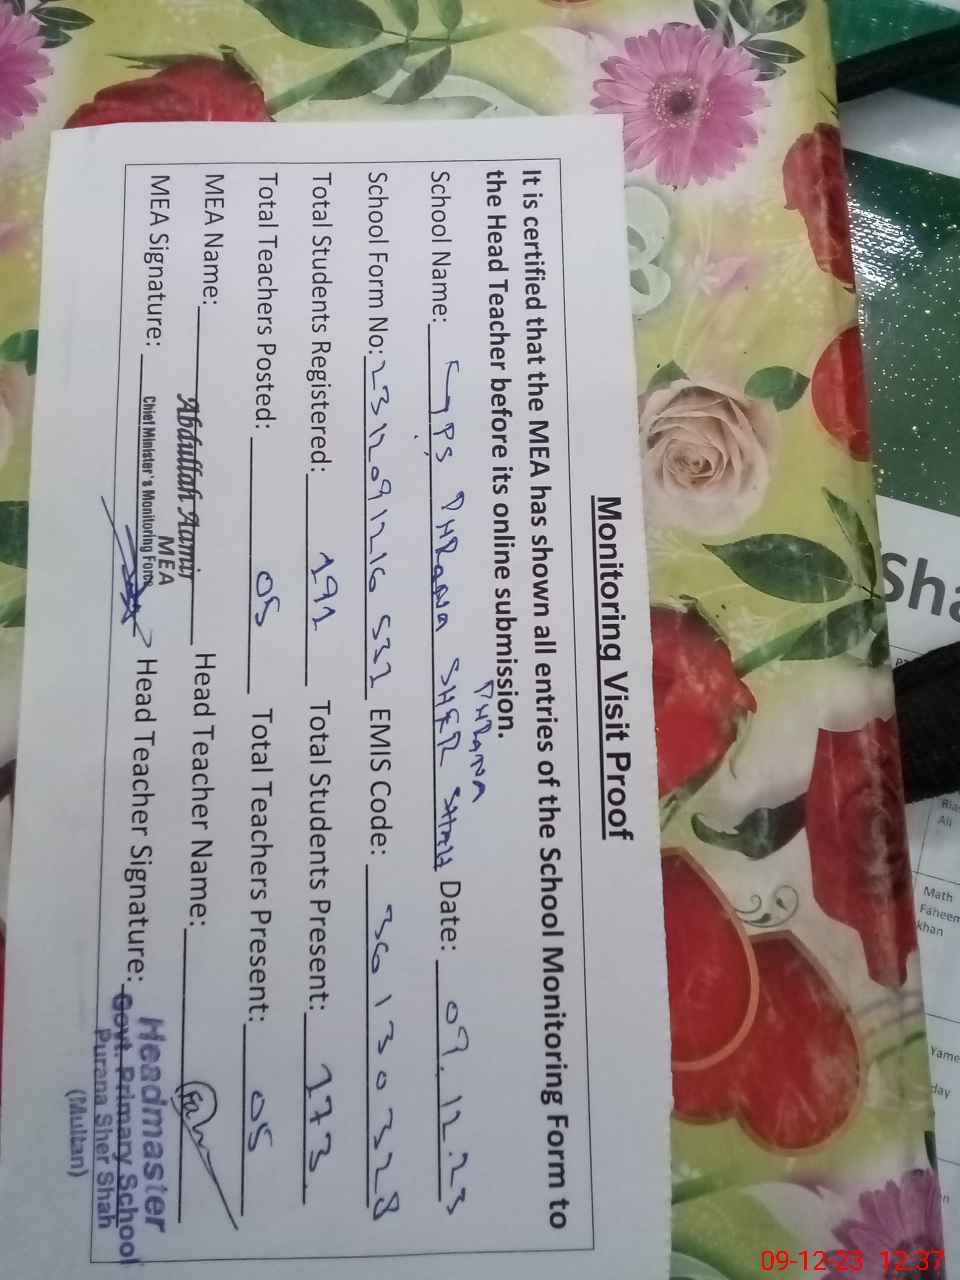 Monitoring Visit Proof
It is certified that the MEA has shown all entries of the School Monitoring Form to
the Head Teacher before its online submission.
PHRANA
School Name: GPS PHRANA SHER SHAH Date: 09.12.23
School Form No: 231209 1216 532 EMIS Code: 36130328
Total Students Registered: 191 Total Students Present: 173
Total Teachers Posted: 05 Total Teachers Present: 05
MEA Name: Abdullah Aamir Head Teacher Name:
MEA
MEA Signature: Chief Minister's Monitoring Force Head Teacher Signature:
Headmaster
Govt. Primary School
Purana Sher Shah
(Multan)
Sha
Ali
Math
Faheem
khan
Yame
day
09-12-23 12:37